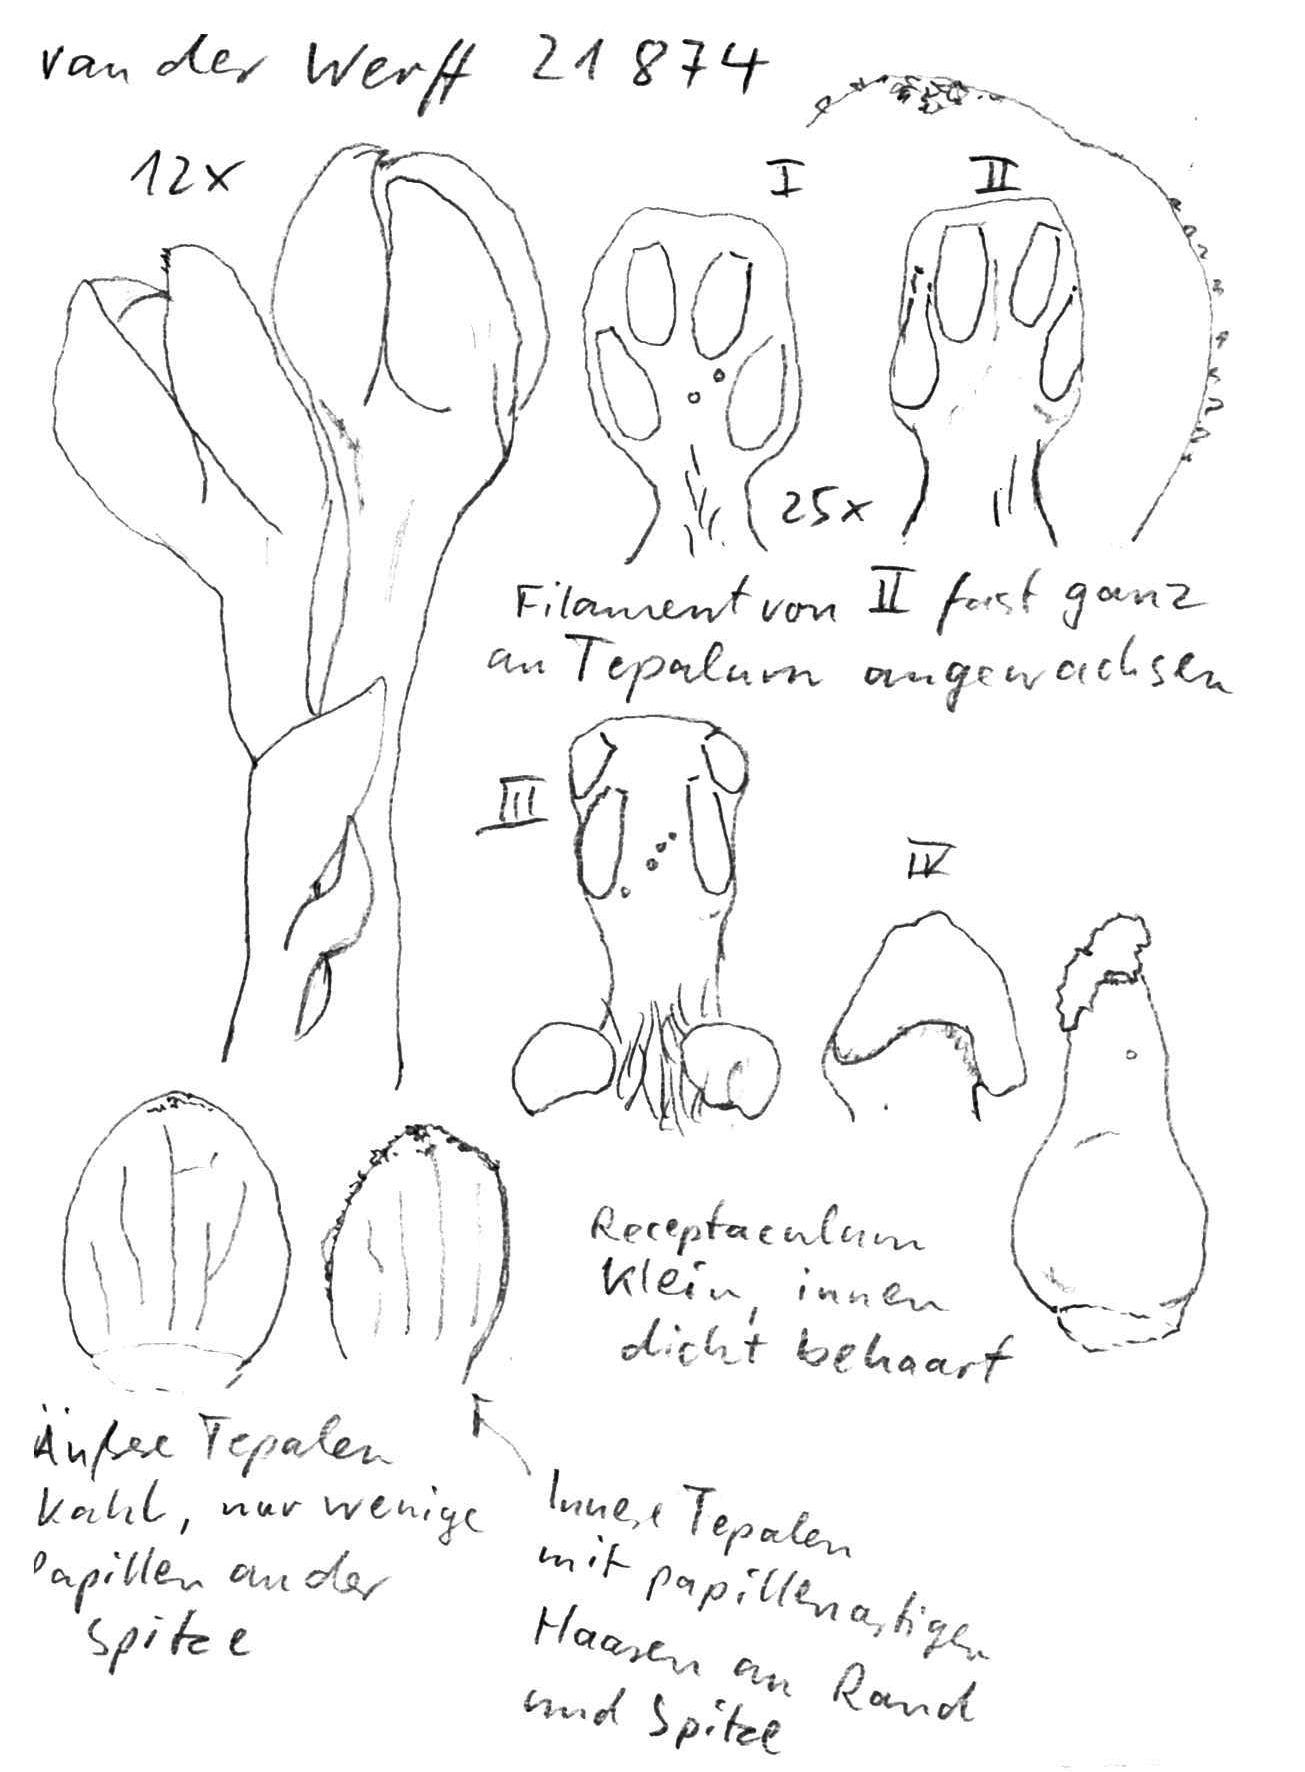 van der Werff 21874
12x
I
II
25x
Filament von II fast ganz
an Tepalum angewachsen
III
IV
Receptaculum
klein, innen
dicht behaart
Äußere Tepalen
kahl, nur wenige
Papillen an der
Spitze
Innere Tepalen
mit papillenartigen
Haaren an Rand
und Spitze